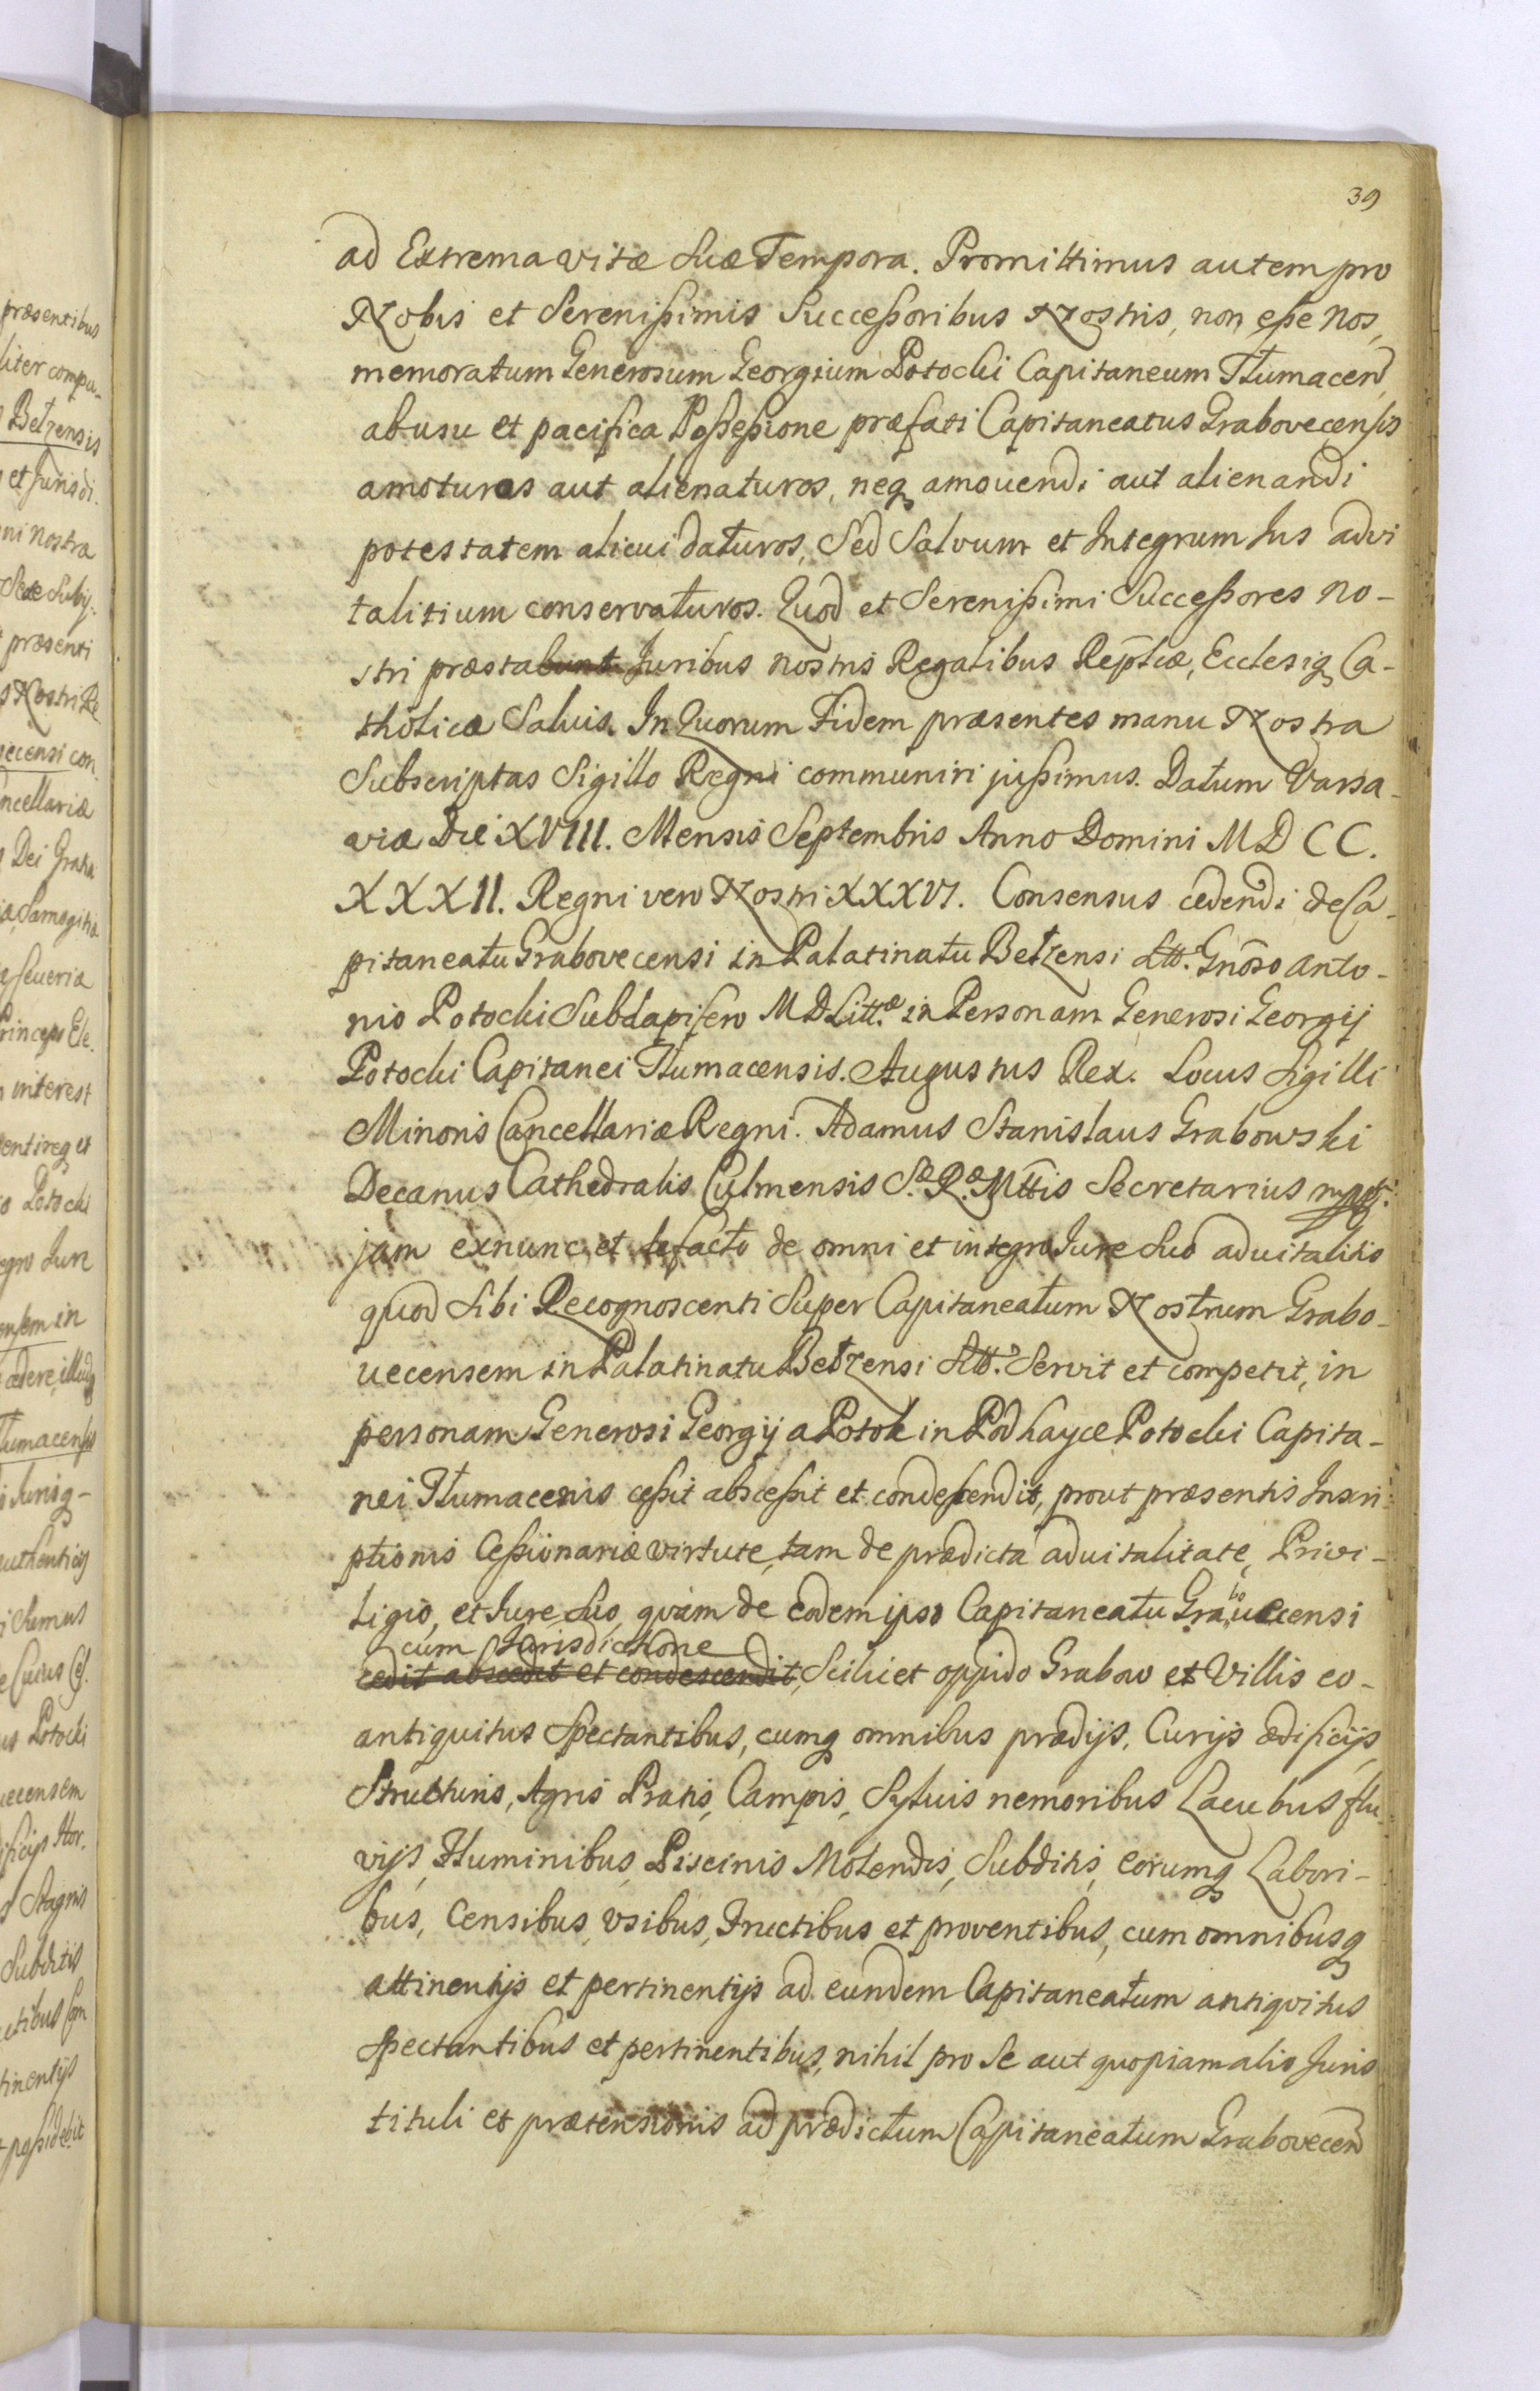 39
ad Extrema vitæ Suæ Tempora. Promittimus autem pro
Nobis et Serenißimis Succeßoribus Nostris, non eße Nos,
memoratum Generosum Georgium Potocki Capitaneum Tłumacen
ab usu et pacifica Poßeßione præfati Capitaneatus Grabovecensis
amoturos aut alienaturos, neq amovendi aut alienandi
potestatem alicui daturos, Sed Salvum et Integrum Jus advi
talitium conservaturos. Quod et Serenißimi Succeßores no-
stri præstabunt Juribus nostris Regalibus Reptcæ, Ecclesiæq Ca-
tholicæ Salvis. In Quorum Fidem præsentes manu Nostra
Subscriptas Sigillo Regni communiri jußimus. Datum Varsa-
viæ Die XVIII. Mensis Septembris Anno Domini M D C C.
XXXII. Regni vero Nostri XXXVI. Consensus cedendi de Ca-
pitaneatu Grabovecensi in Palatinatu Bełzensi Stto. Gnoso Anto-
nio Potocki Subdapifero M D Littæ in Personam Generosi Georgij
Potocki Capitanei Tłumacensis. Augustus Rex. Locus Sigilli
Minoris Cancellariæ Regni. Adamus Stanislaus Grabowski
Decanus Cathedralis Culmensis Sæ. Ræ. Mttis Secretarius mpp.
jam exnunc et defacto de omni et integro Jure Suo advitalitio
quod Sibi Recognoscenti Super Capitaneatum Nostrum Grabo-
vecensem in Palatinatu Bełzensi Stto. Servit et competit, in
personam Generosi Georgij a Potok in Podhayce Potocki Capita-
nei Tłumacensis ceßit absceßit et condescendit, prout præsentis Inscri-
ptionis Ceßionariæ virtute, tam de prædicta advitalitate, Privi-
ligio, et Jure Suo, quàm de eodem ipso Capitaneatu Grabovecensi
cum Jurisdictione
cedit abscedit et condescendit, Scilicet oppido Grabow et Villis eo-
antiquitus Spectantibus, cumq omnibus prædijs, Curijs ædificijs,
Structuris, Agris Pratis, Campis, Sylvis nemoribus Lacubus flu-
vijs, Fluminibus, Piscinis Molendis, Subditis, eorumq Labori-
bus, Censibus, Usibus, Fructibus et proventibus, cum omnibusq
attinentijs et pertinentijs ad eundem Capitaneatum antiqvitus
Spectantibus et pertinentibus, nihil pro Se aut quopiam alio Juris
tituli et prætensionis ad prædictum Capitaneatum Grabovecen